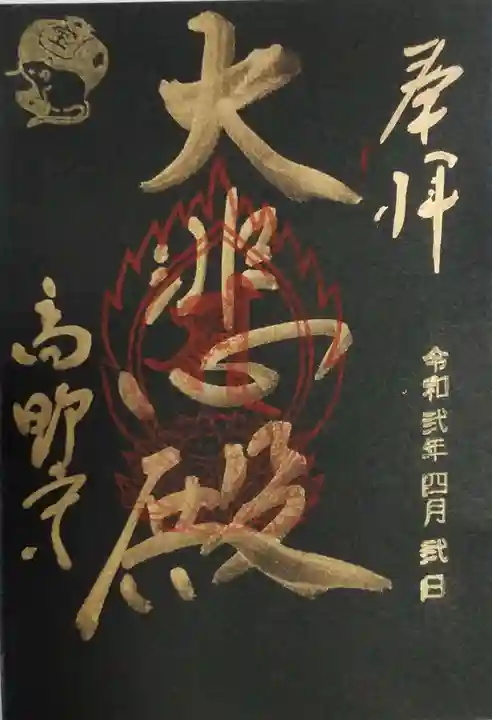 奉拝
令和弐年四月弐日
大悲殿
高野寺